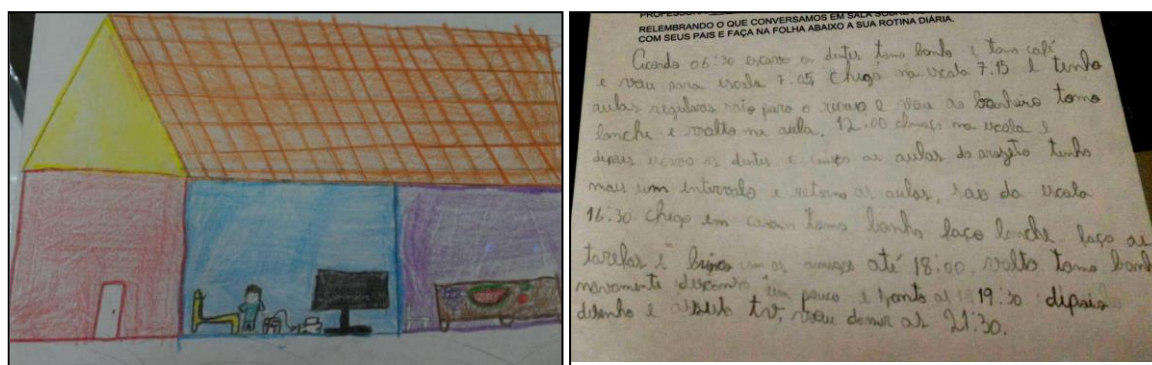 RELEMBRANDO O QUE CONVERSAMOS EM SALA
COM SEUS PAIS E FAÇA NA FOLHA ABAIXO A SUA ROTINA DIÁRIA.
Acordo 06:30 escovo os dentes tomo banho e tomo café
e vou para escola 7.05, chego na escola 7.15 e tenho
aulas regulares saio para o recreio e vou ao banheiro tomo
lanche e volto na aula, 12.00 almoço na escola e
depois escovo os dentes e começo as aulas do projeto tenho
mais um intervalo e retorno as aulas, saio da escola
16:30 chego em casa tomo banho faço lanche faço as
tarefas e brinco com os amigos até 18:00, volto tomo banho
novamente descanso um pouco e janto as 19:30 depois
desenho e assisto tv, vou dormir as 21:30.